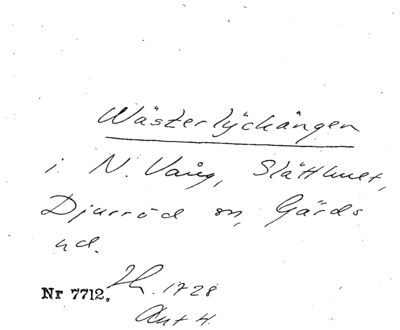 Wästerlyckängen
i N. Vång, Slätthult,
Djurröd sn, Gärds
hd.
Nr 7712. Lh. 1728
Ant H.